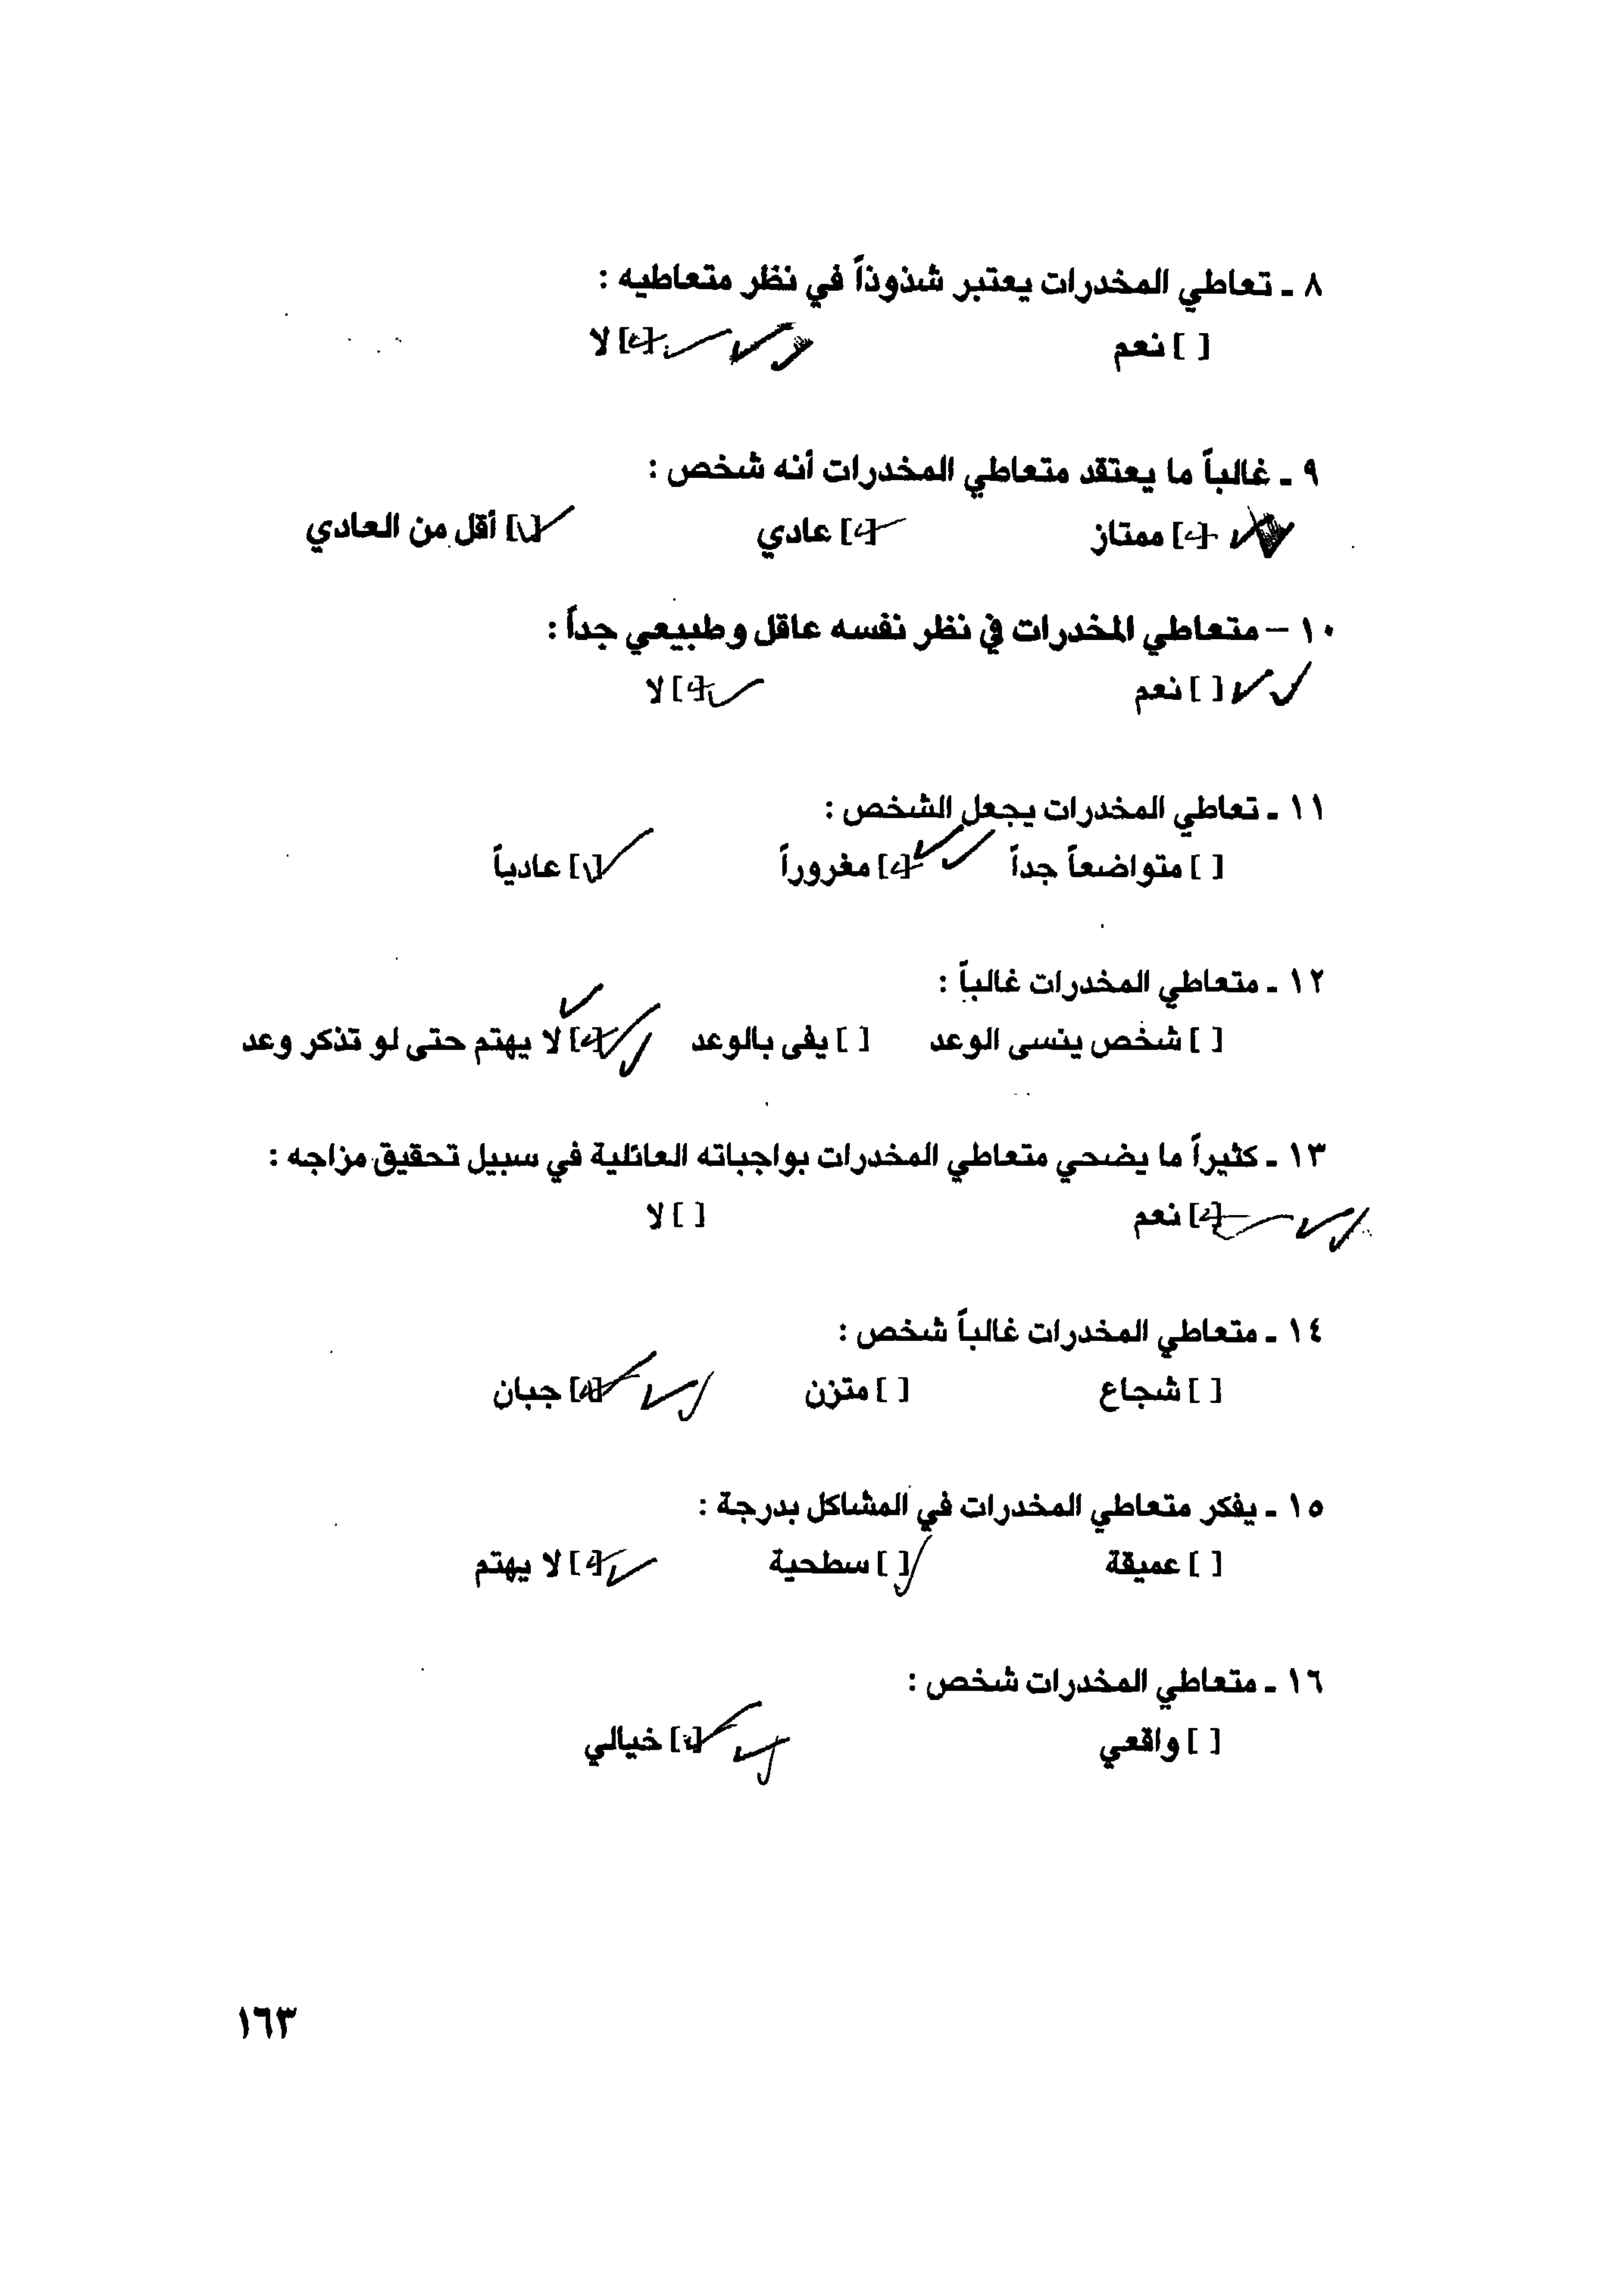 ٨ ـ تعاطي المخدرات يعتبر شذوذاً في نظر متعاطيه :
[ ] نعم [✓] لا
٩ ـ غالباً ما يعتقد متعاطي المخدرات أنه شخص :
[✓] ممتاز [✓] عادي [✓] أقل من العادي
١٠ – متعاطي المخدرات في نظر نفسه عاقل وطبيعي جداً :
[ ] نعم [✓] لا
١١ ـ تعاطي المخدرات يجعل الشخص :
[ ] متواضعاً جداً [✓] مغروراً [✓] عادياً
١٢ ـ متعاطي المخدرات غالباً :
[ ] شخص ينسى الوعد [ ] يفى بالوعد [✓] لا يهتم حتى لو تذكر وعد
١٣ ـ كثيراً ما يضحي متعاطي المخدرات بواجباته العائلية في سبيل تحقيق مزاجه :
[✓] نعم [ ] لا
١٤ ـ متعاطي المخدرات غالباً شخص :
[ ] شجاع [ ] متزن [✓] جبان
١٥ ـ يفكر متعاطي المخدرات في المشاكل بدرجة :
[ ] عميقة [ ] سطحية [✓] لا يهتم
١٦ ـ متعاطي المخدرات شخص :
[ ] واقعي [✓] خيالي
١٦٣